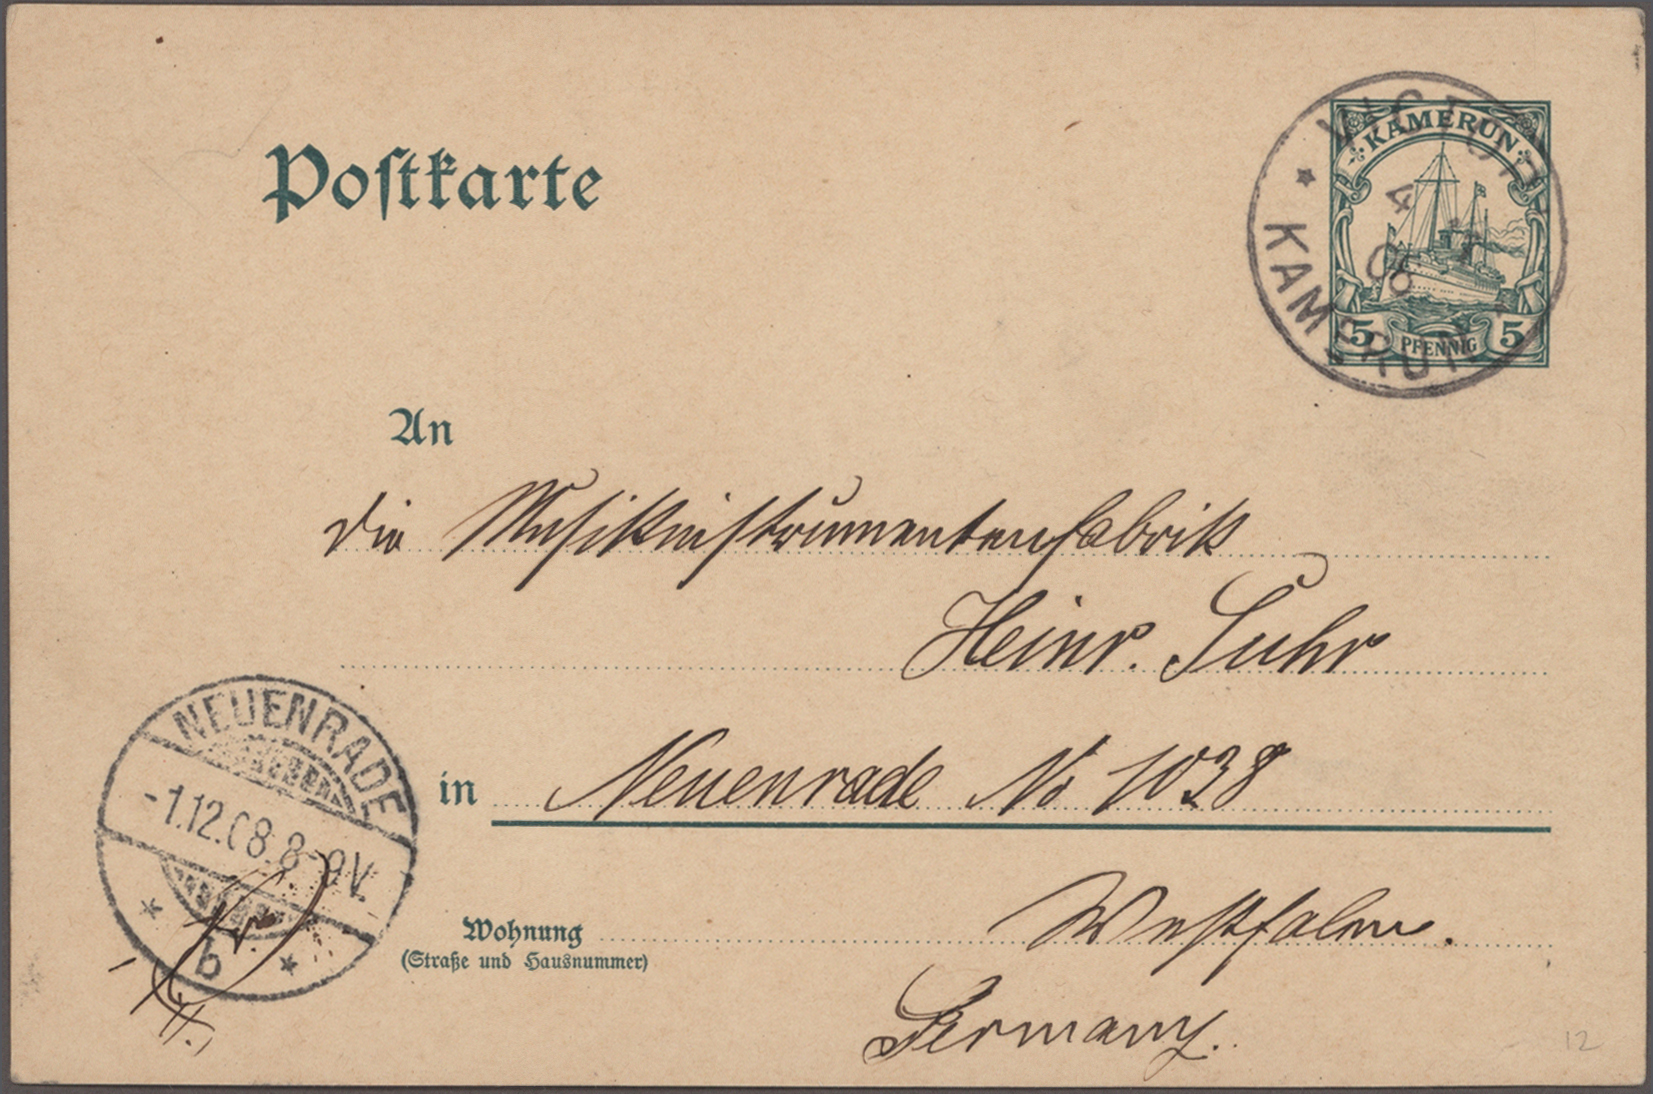 Postkarte
KAMERUN
5 PFENNIG 5
VICTORIA
* KAMERUN
An
die Musikinstrumentenfabrik
Heinr. Suhr
in Neuenrade No 1038
Wohnung Westfalen.
(Straße und Hausnummer)
Germany.
NEUENRADE
-1.12.08.8-9V.
* b *
12